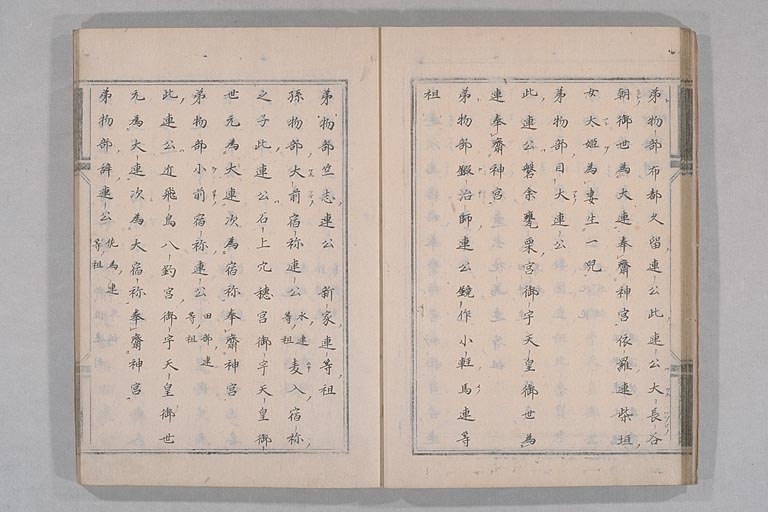 弟物部布都久留連公此連公大長谷
朝御世為大連奉齋神宮依羅連柴垣
女太姫為妻生一兒
弟物部目大連公
此連公磐余甕栗宮御宇天皇御世為
連奉齋神宮
弟物部鍛治師連公鏡作小軽馬連等
祖
弟物部竺志連公 新家連等祖
孫物部大前宿祢連公 氷連等祖 麦入宿祢
之子此連公石上穴穂宮御宇天皇御
世元為大連次為宿祢奉齋神宮
弟物部小前宿祢連公 田部連等祖
此連公近飛鳥八釣宮御宇天皇御世
元為大連次為大宿祢奉齋神宮
弟物部辞連公 佐為連等祖